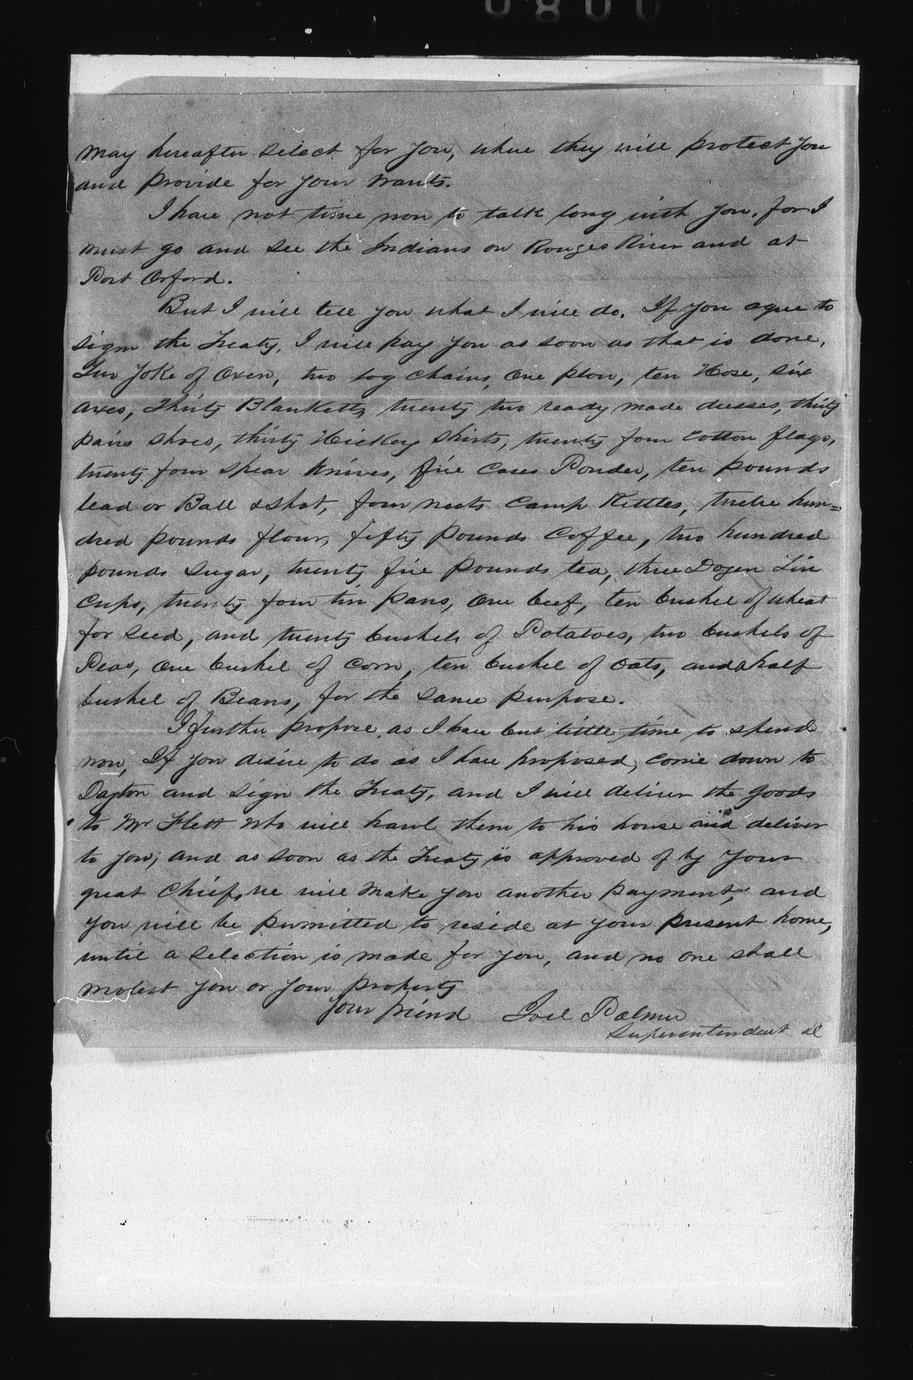 0800
may hereafter select for you, where they will protect you
and provide for your wants.
I have not time now to talk long with you, for I
must go and see the Indians on Rouges River and at
Port Orford.
But I will tell you what I will do. If you agree to
sign the Treaty, I will pay you as soon as that is done,
Two Yoke of Oxen, two log chains, one plow, ten Hose, six
axes, Thirty Blanketts, twenty two ready made dresses, thirty
pairs shoes, thirty Hickory Shirts, twenty four cotton flags,
twenty four spear Knives, five cases Powder, ten pounds
lead or Ball & shot, four nests Camp Kettles, twelve hun=
dred pounds flour, fifty pounds Coffee, two hundred
pounds sugar, twenty five pounds tea, three Dozen Tin
cups, twenty four tin pans, one beef, ten bushel of wheat
for seed, and twenty bushels of Potatoes, two bushels of
Peas, one bushel of corn, ten bushel of oats, and half
bushel of Beans, for the same purpose.
I further propose, as I have but little time to spend
now, If you desire to do as I have proposed, come down to
Dayton and sign the Treaty, and I will deliver the goods
to Mr Flett who will hawl them to his house and deliver
to you; and as soon as the Treaty is approved of by Your
great Chief, he will make you another payment, and
you will be permitted to reside at your present home,
until a selection is made for you, and no one shall
molest you or your property
Your friend Joel Palmer
Superintendent